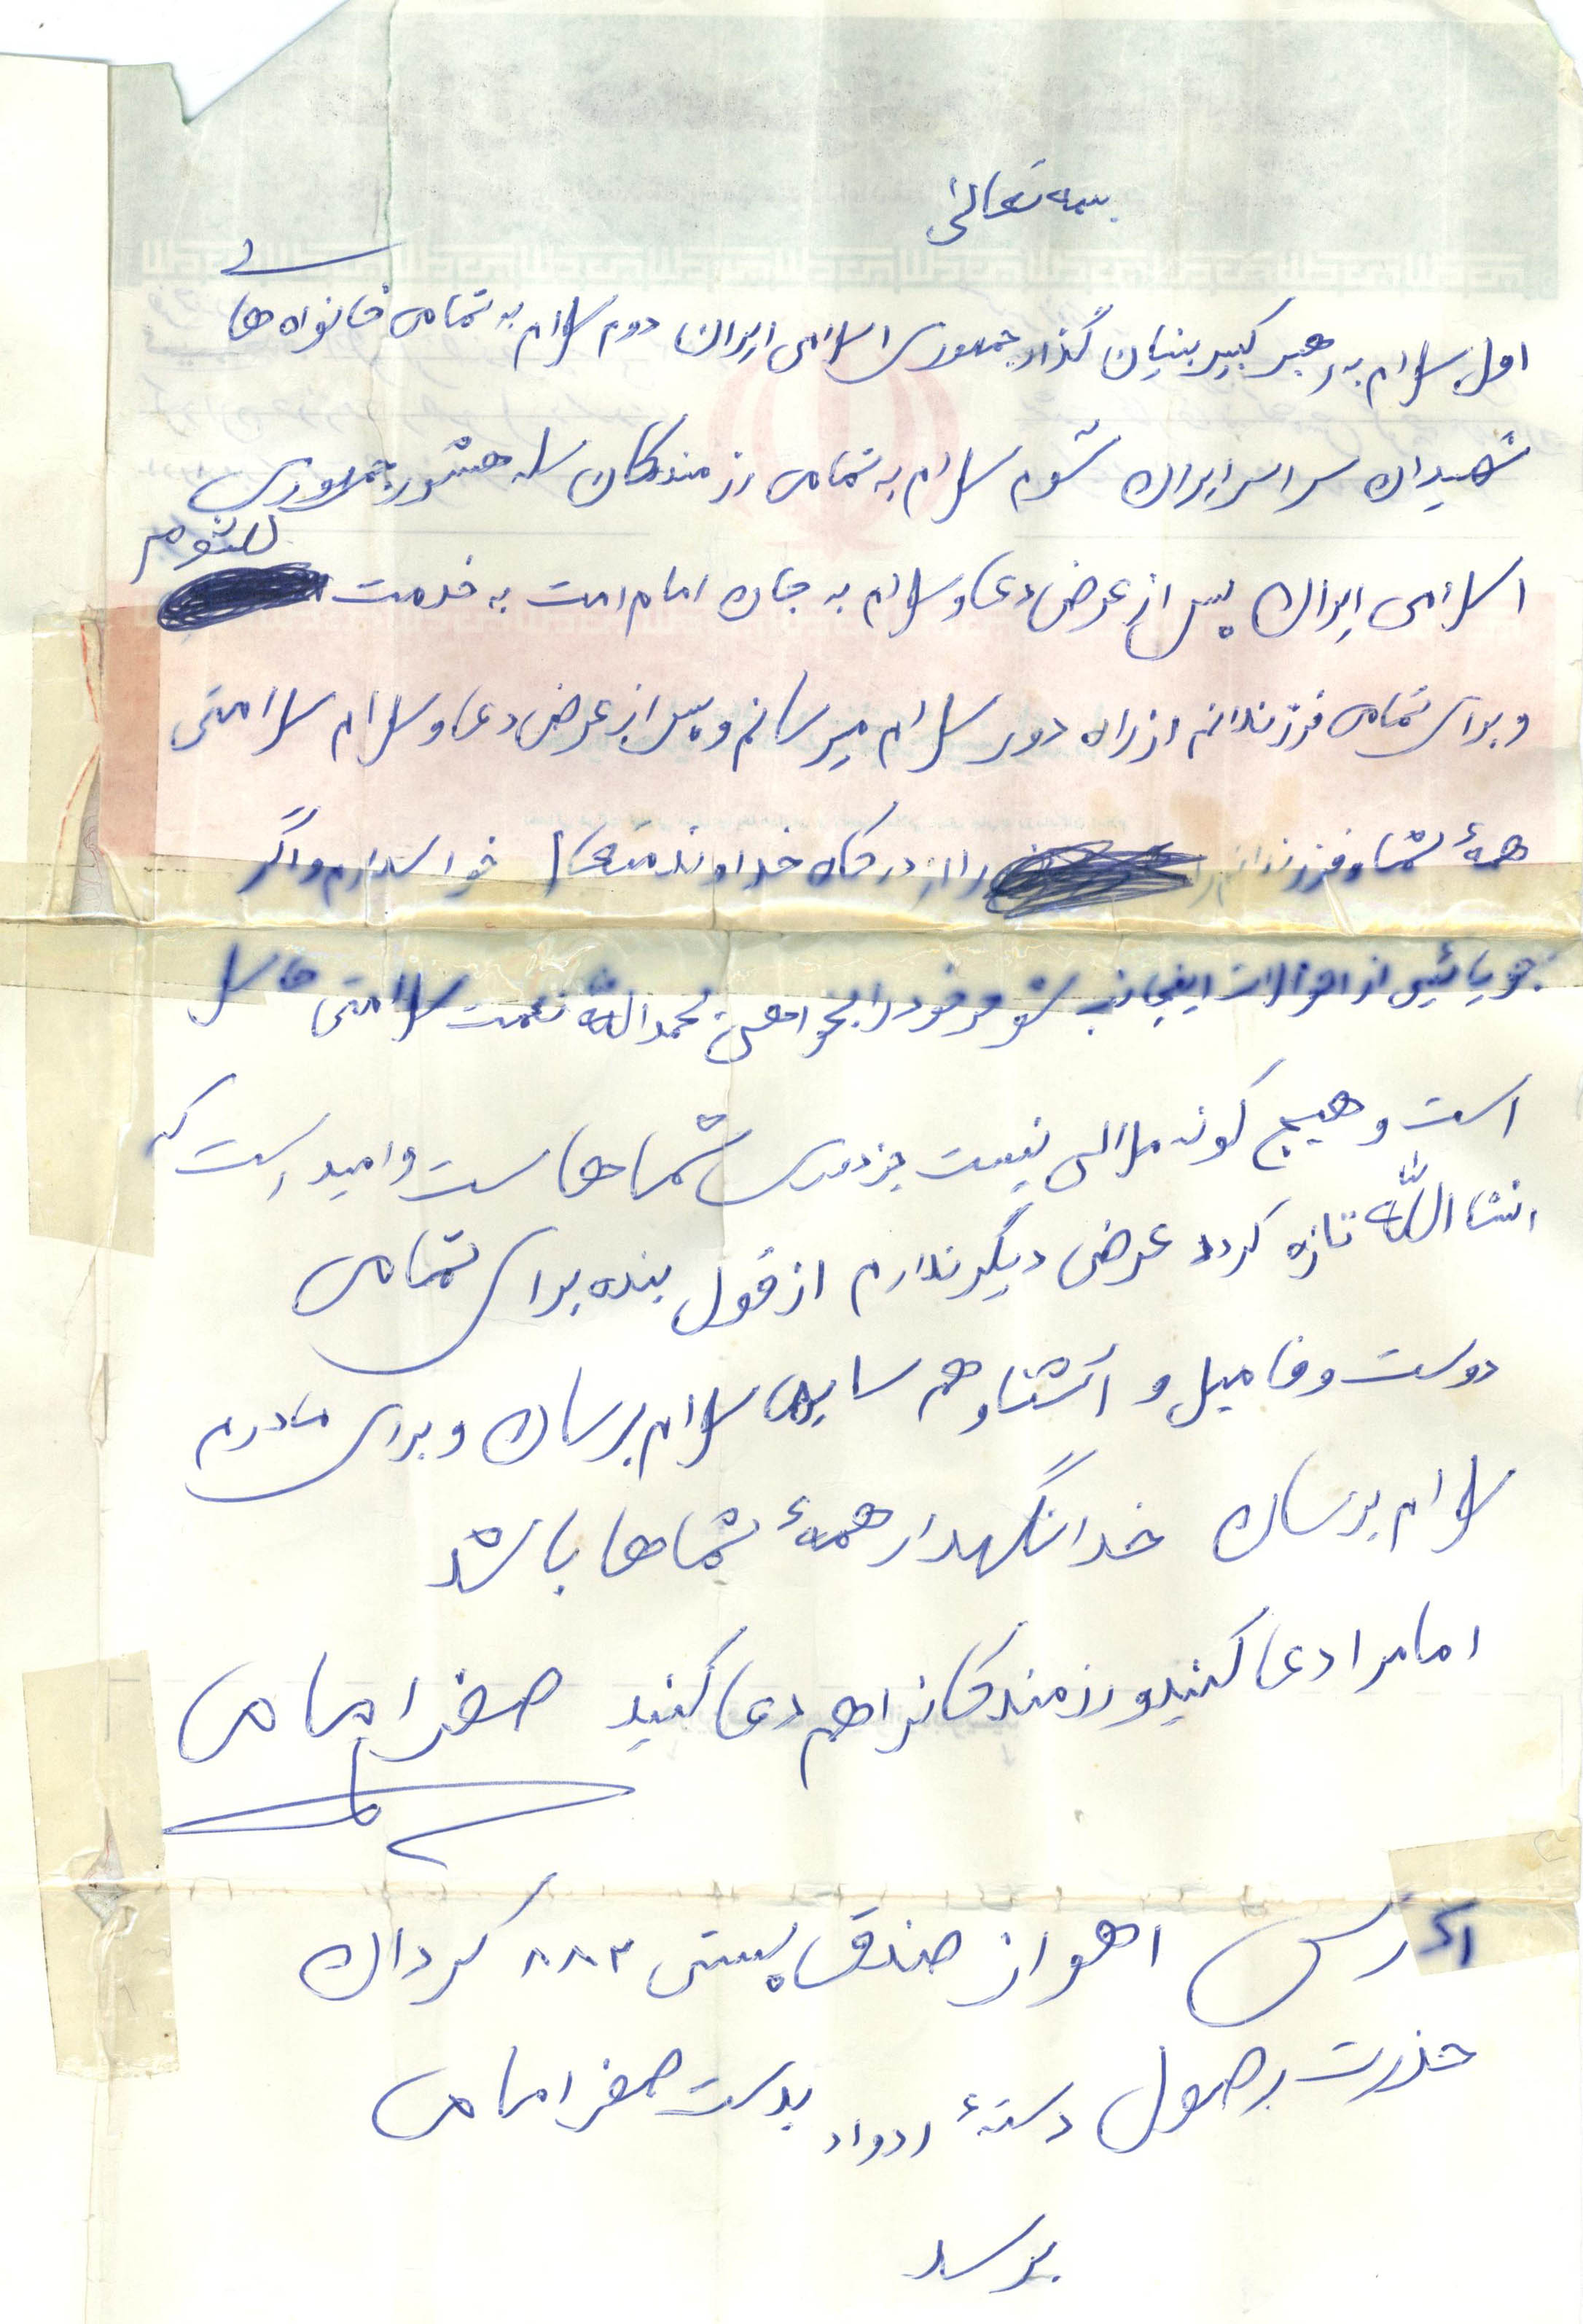 بسمه تعالی
اول سلام به رهبر کبیر بنیان گذار جمهوری اسلامی ایران دوم سلام به تمامی خانواده های
شهیدان سراسر ایران سوم سلام به تمامی رزمندگان جمهوری
اسلامی ایران پس از عرض دعا و سلام به جان امام امت به خدمت کلثوم
و برای تمامی فرزندانم از راه دور سلام میرسانم و پس از عرض دعا و سلام سلامتی
همهٔ شما و فرزندانم را از درگاه خداوند متعال خواستارم و اگر
جویائیی از احوالات اینجانب شوهر خود را بخواهی بحمدالله نعمت سلامتی حاصل
است و هیچ گونه ملالی نیست جز دوری شماها ست و امید است که
انشاالله تازه گردد عرض دیگر ندارم از قول بنده برای تمامی
دوست و فامیل و آشنا و هم سایه سلام برسان و برای مادرم
سلام برسان خدا نگهدار همهٔ شماها باشد
امام را دعا کنید و رزمندگانرا هم دعا کنید صفر امامی
آدرس اهواز صندق پستی ۸۸۳ گردان
حذرت رصول دستهٔ ادوات بدست صفر امامی
برسد